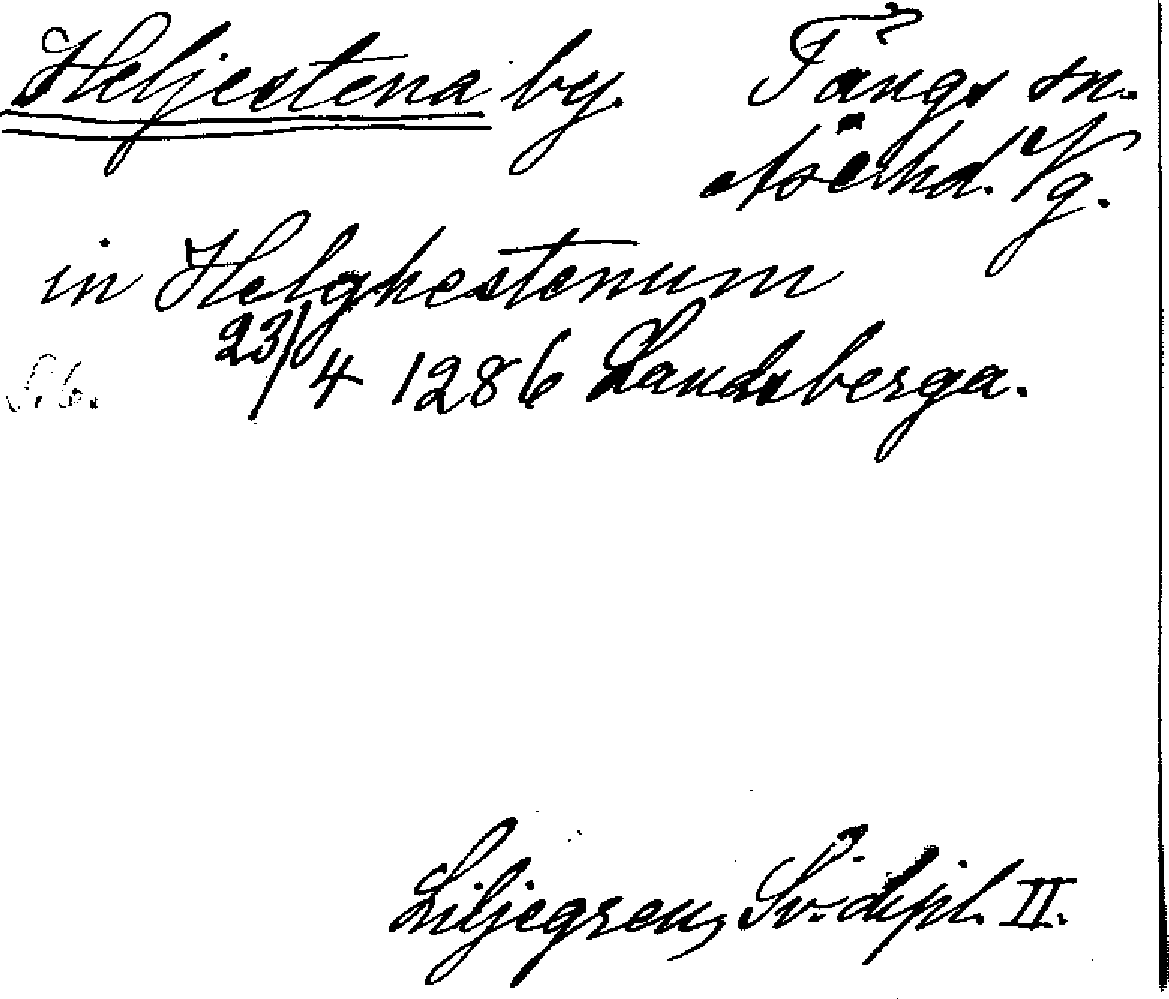 Heljestena by. Tängs sn.
Åse hd. Vg.
in Helghestenum
S. 6. 23/4 1286 Landsberga.
Liljegren, Sv. dipl. II.